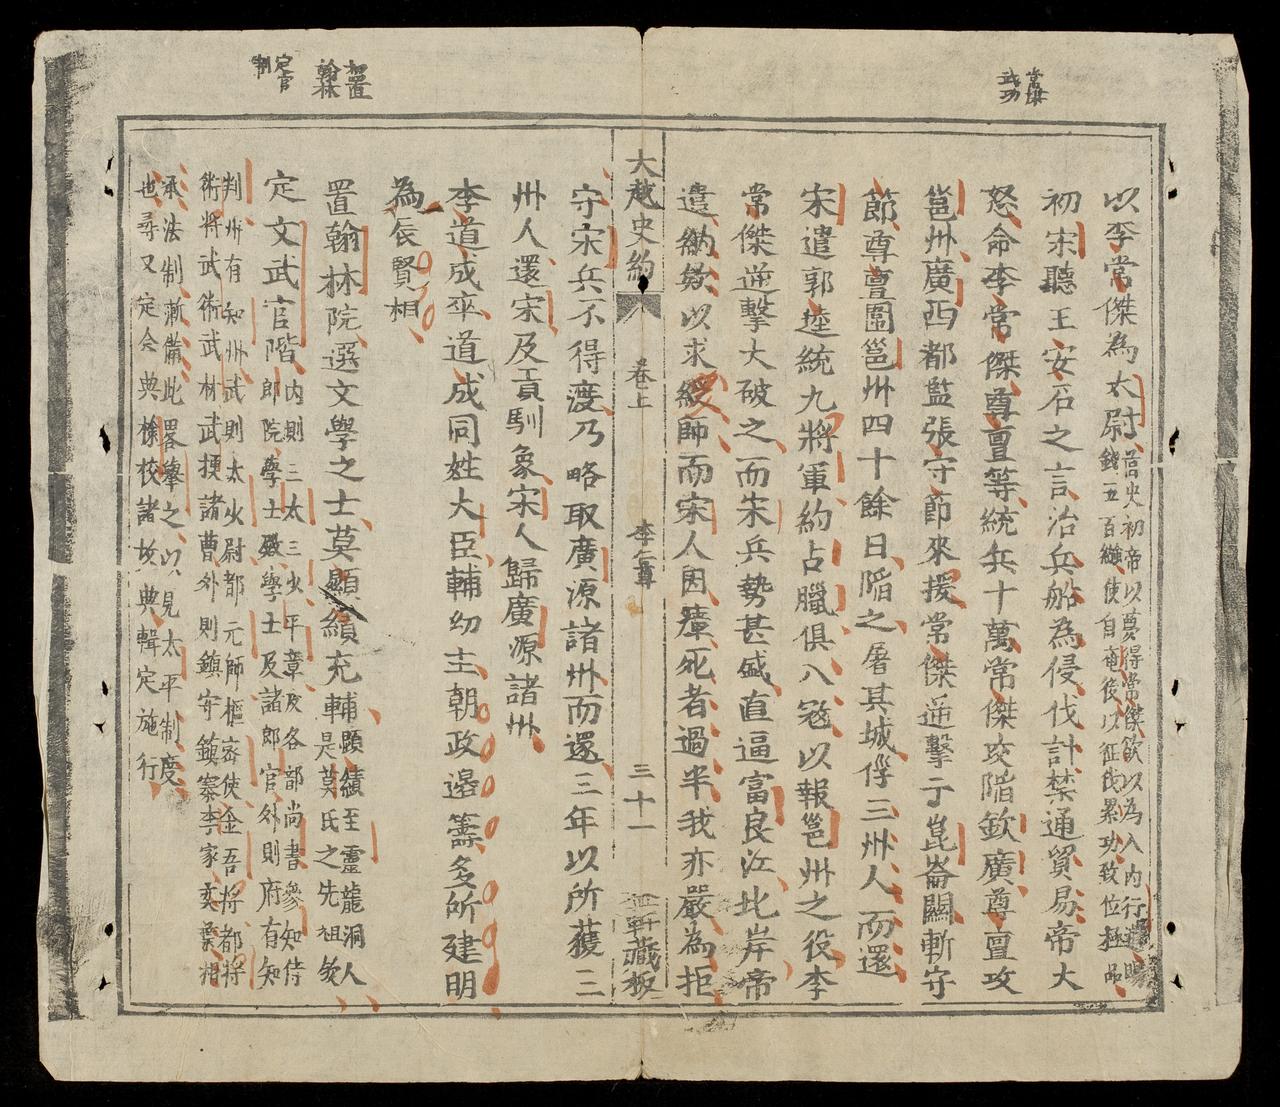 常傑
武功
以李常傑為太尉舊史初帝以夢得常傑欽以為入內行遣賜
錢五百緡使自奄後以征伐累功致位極品
初宋聽王安石之言治兵船為侵伐計禁通貿易帝大
怒命李常傑尊亶等統兵十萬常傑攻陷欽廣尊亶攻
邕州廣西都監張守節來援常傑逆擊于崑崙關斬守
節尊亶圍邕州四十餘日陷之屠其城俘三州人而還
宋遣郭逵統九將軍約占臘俱入寇以報邕州之役李
常傑逆擊大破之而宋兵勢甚盛直逼富良江北岸帝
遣納欵以求緩師而宋人因瘴死者過半我亦嚴為拒
大越史約
卷上
李仁尊
三十一
軒藏板
守宋兵不得渡乃略取廣源諸州而還三年以所獲三
州人還宋及貢馴象宋人歸廣源諸州
李道成卒道成同姓大臣輔幼主朝政邊籌多所建明
為辰賢相
初置
翰林
置翰林院選文學之士莫顯績充輔顯績至靈龍洞人
是莫氏之先祖矣
定官
制
定文武官階內則三太三少平章及各部尚書參知侍
郎院學士殿學士及諸郎官外則府有知
判州有知州武則太少尉都元師樞密使金吾將都將
術將武術武材武捷諸曹外則鎮守鎮寨李家奕葉相
承法制漸備此畧舉之以見太平制度
也尋又定会典條校諸故典輯定施行